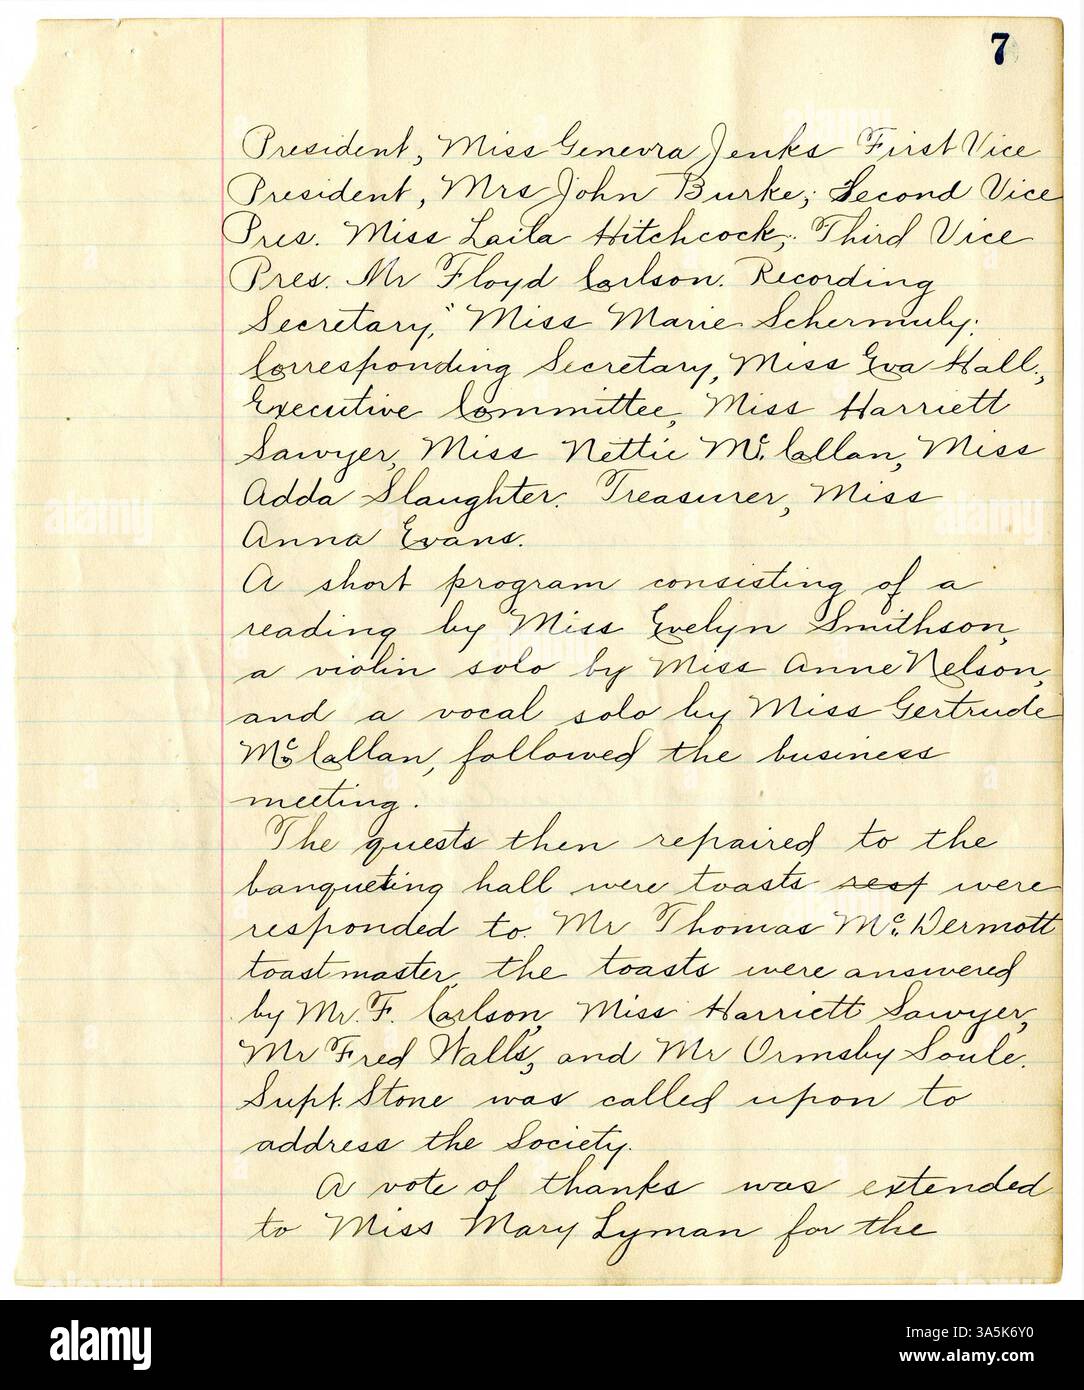 7
President, Miss Genevra Jenks First Vice
President, Mrs John Burke; Second Vice
Pres. Miss Laila Hitchcock; Third Vice
Pres. Mr Floyd Carlson. Recording
Secretary, Miss Marie Schermuly;
Corresponding Secretary, Miss Eva Hall.,
Executive Committee, Miss Harriett
Sawyer, Miss Nettie McCallan, Miss
Adda Slaughter. Treasurer, Miss
Anna Evans.
A short program consisting of a
reading by Miss Evelyn Smithson,
a violin solo by Miss Anne Nelson,
and a vocal solo by Miss Gertrude
McCallan, followed the business
meeting.
The guests then repaired to the
banqueting hall were toasts resp were
responded to. Mr Thomas McDermott
toastmaster, the toasts were answered
by Mr. F. Carlson, Miss Harriett Sawyer,
Mr Fred Walls, and Mr Ormsby Soule.
Supt. Stone was called upon to
address the Society.
A vote of thanks was extended
to Miss Mary Lyman for the
alamy
Image ID: 3A5K6Y0
www.alamy.com